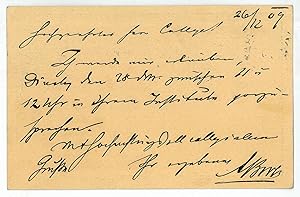 26/12 09
Hochgeehrter Herr College!
Ich werde mir erlauben,
Dienstag den 28 d. M. zwischen 11 u
12 Uhr in Ihrem Institute vorzu-
sprechen.
Mit hochachtungsvoll collegialem
Gruße
Ihr ergebener